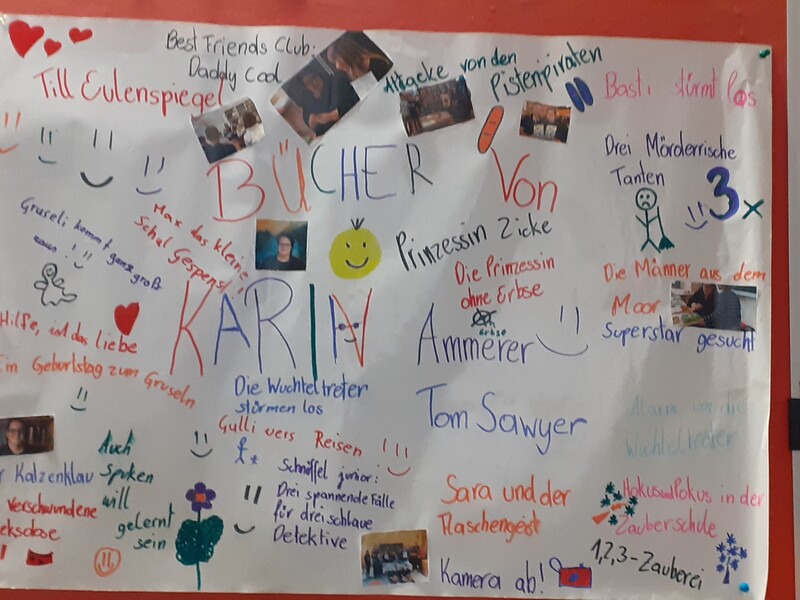 Best Friends Club:
Daddy Cool
Till Eulenspiegel
Attacke von den
Pistenpiraten
Basti stürmt los
Drei Mörderrische
Tanten
3x
BÜCHER Von
Gruseli kommt ganz groß
raus!
Max das kleine
Schul Gespenst!
Prinzessin Zicke
Die Prinzessin
ohne Erbse
Erbse
Die Männer aus dem
Moor
Superstar gesucht
KARIN Ammerer
Hilfe, ist das liebe
Ein Geburtstag zum Gruseln
Die Wuchteltreter
stürmen los
Gulli vers Reisen
Tom Sawyer
Alarm die
Wuchteltreter
Katzenklau
verschwundene
eksdose
Auch
Spuken
will
gelernt
sein
Schnüffel junior:
Drei spannende Fälle
für drei schlaue
Detektive
Sara und der
Flaschengeist
Kamera ab!
Hokus und Pokus in der
Zauberschule
1,2,3-Zauberei